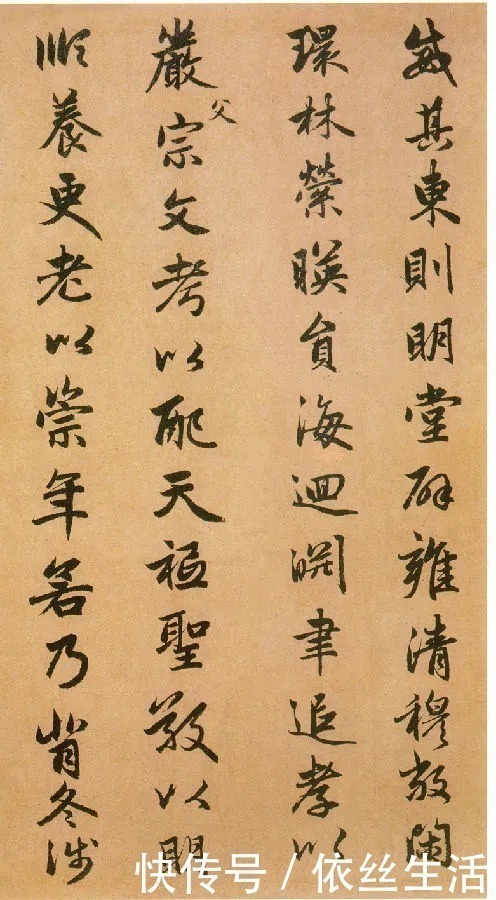 威其東則明堂辟雍清穆敞閑
環林縈暎員海迴淵聿追孝以
嚴父宗文考以配天祗聖敬以明
順養更老以崇年若乃背冬涉
快传号 / 依丝生活